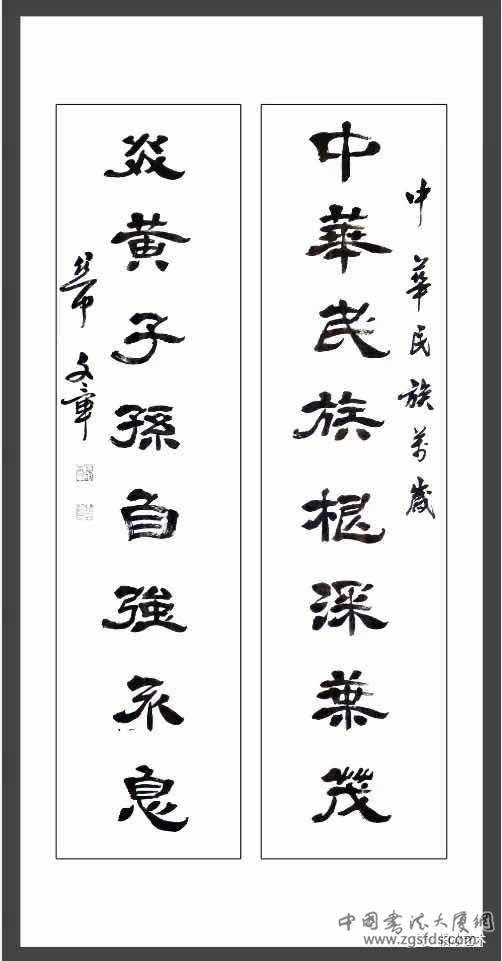 中華民族萬歲
中華民族根深葉茂
炎黄子孫自強不息
文章
中國書法大厦網
www.zgsfds.com